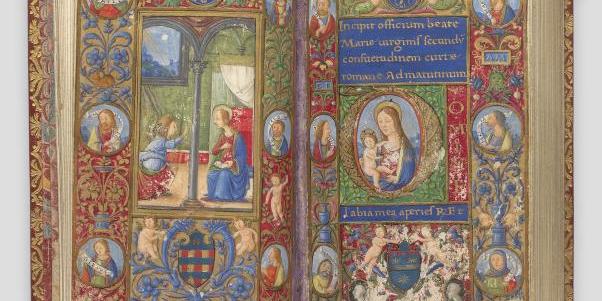 Incipit officium beate
Marie uirginis secundȳ
consuetudinem curie
romane Ad matutinum
Labia mea aperies R. E t